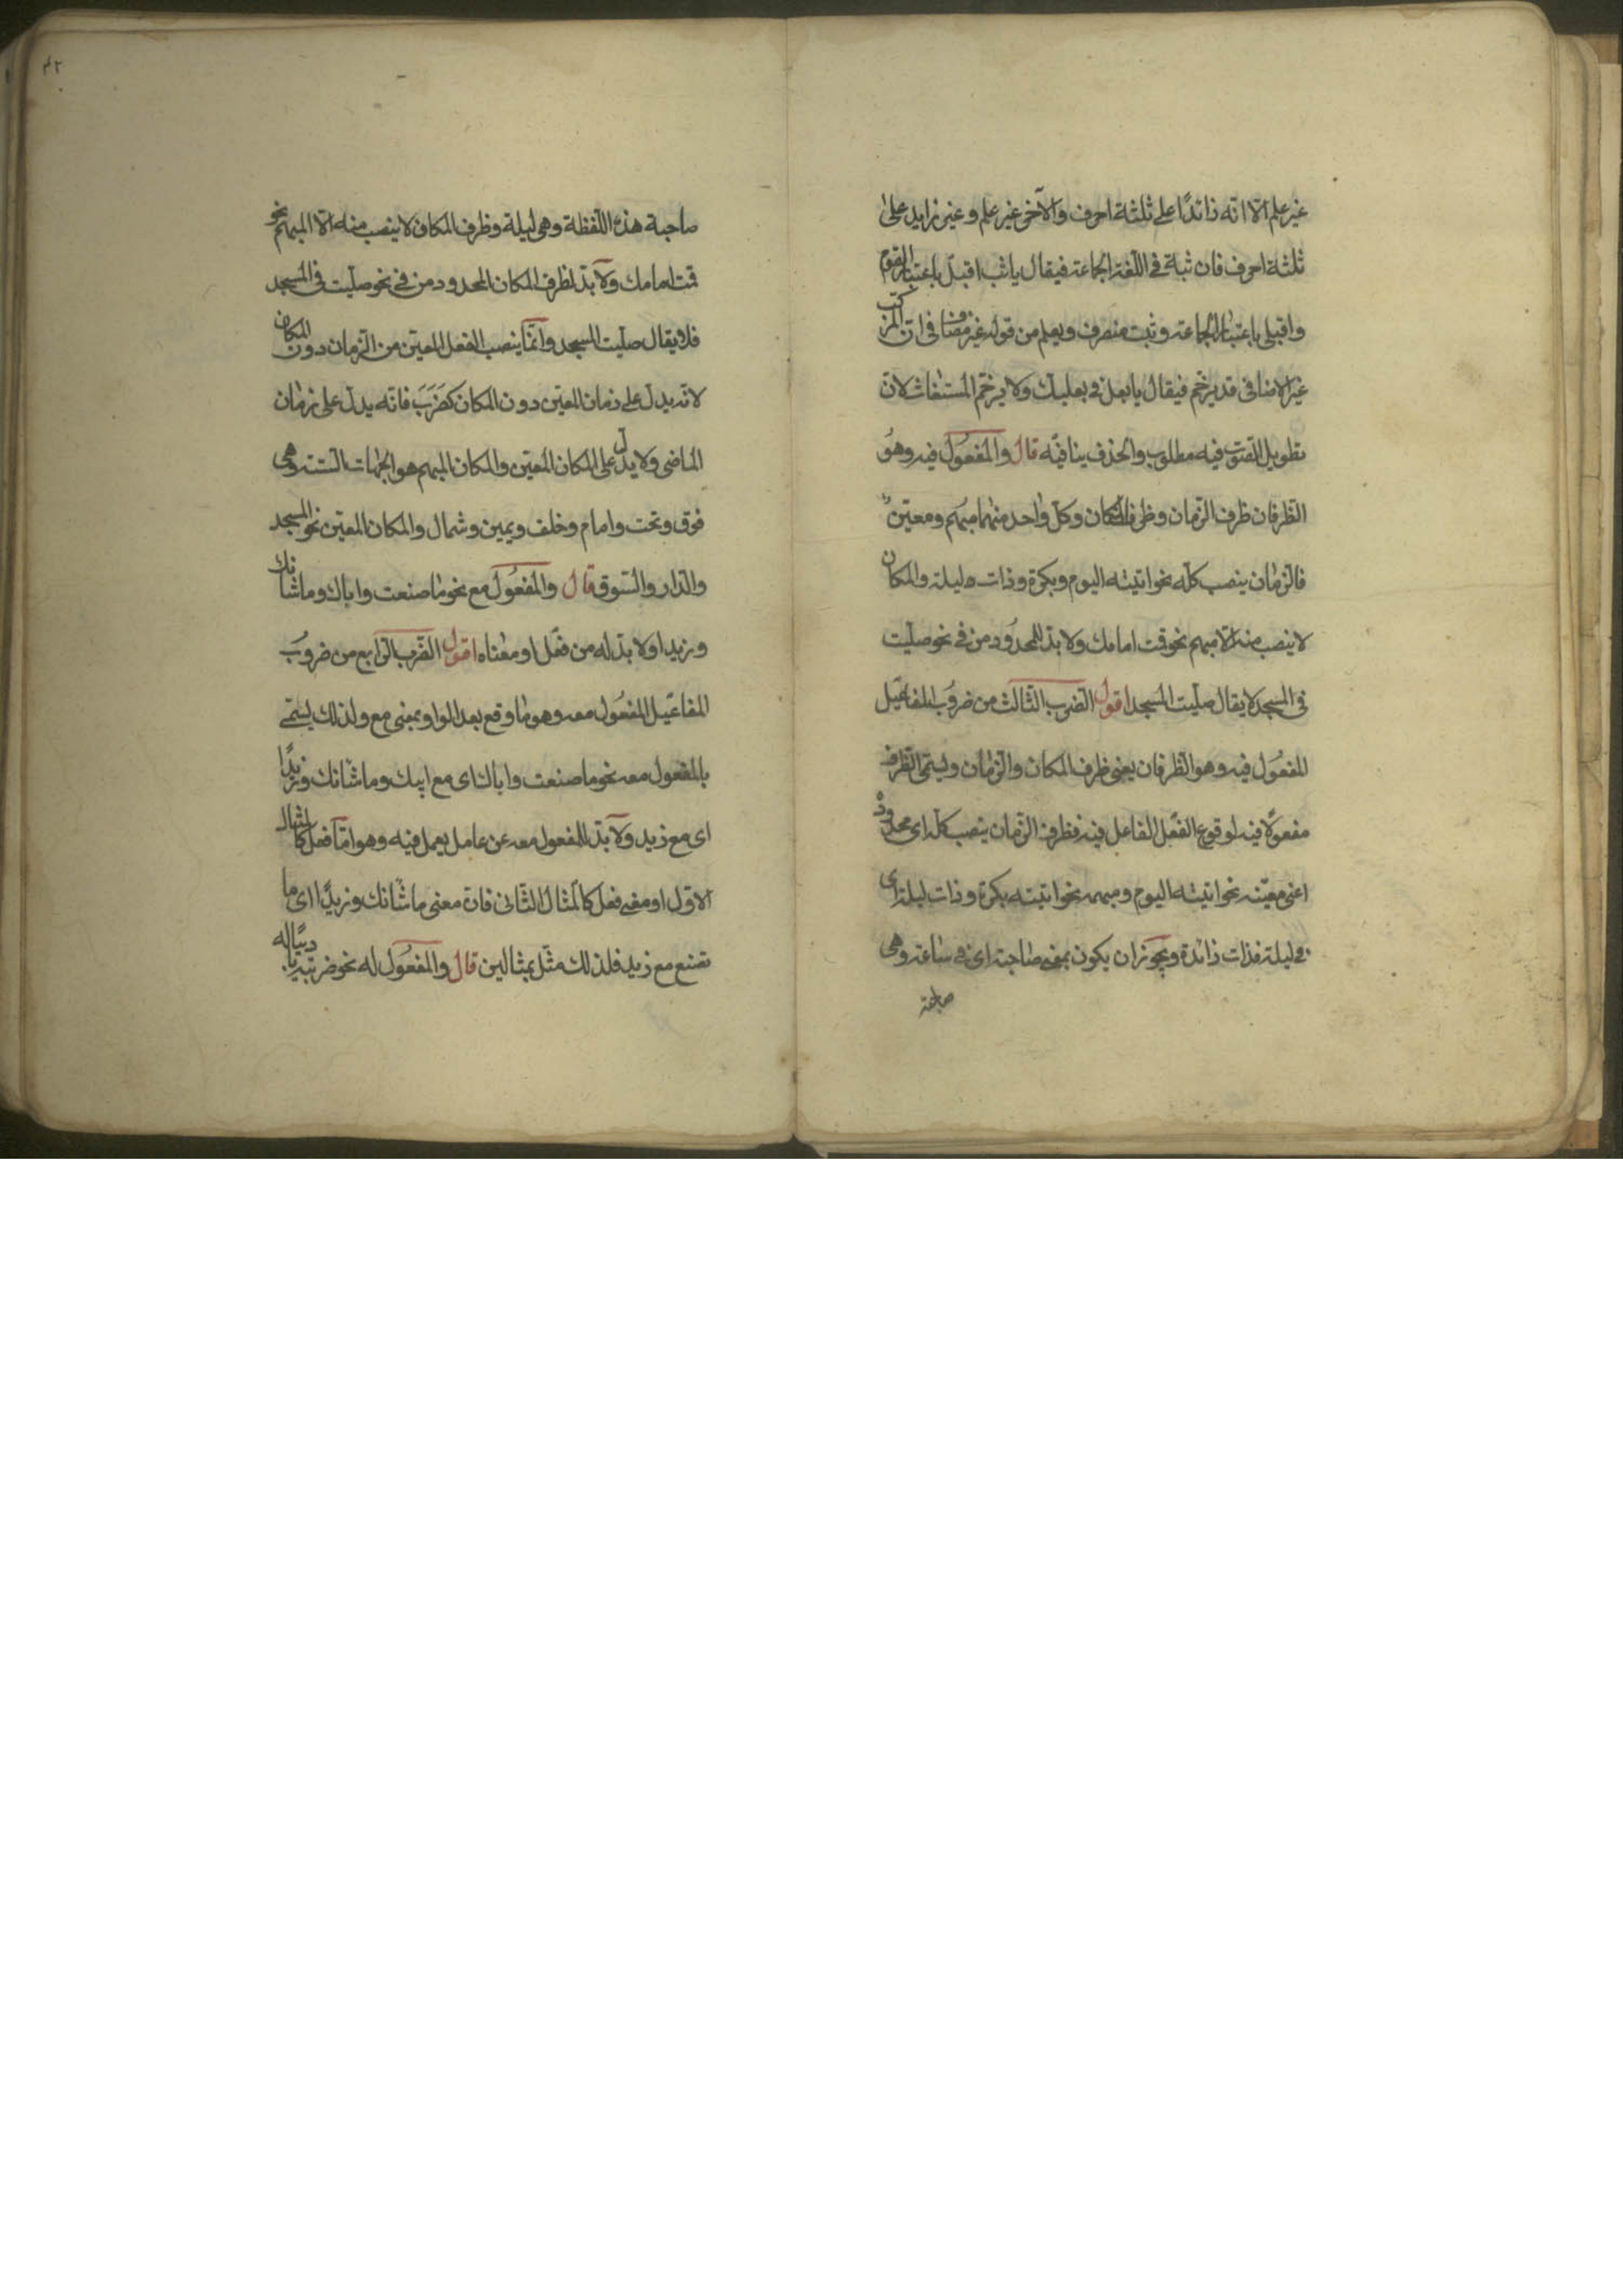 غير علم الا انه زائدا على ثلثة احرف والآخر غير علم وغير زايد على
ثلثة احرف فان ثبة في اللغة الجماعة فيقال ياثب اقبل باعتبار القوم
واقبلى باعتبار الجماعة وثبت منصرف ويعلم من قوله غير مضاف ان المركب
غير الاضافى قد يرخم فيقال يابعل في بعلبك ولا يرخم المستغاث لان
تطويل الصّوت فيه مطلوب والحذف ينافيه قال والمفعُول فيه وهوَ
الظرفان ظرف الزّمان وظرف المكان وكلّ واحد منهما مبهم ومعيّن
فالزمان ينصب كله نحو اتيته اليوم وبكرة وذات ليلة والمكان
لا ينصب منه الا مبهم نحو قمت امامك ولا بدّ للمحدُود من في نحو صلّيت
في المسجد لا يقال صلّيت المسجد اقول الضرب الثالث من ضروب المفاعيل
المفعُول فيه وهو الظرفان يعنى ظرف المكان والزمان ويسمّى الظرف
مفعولًا فيه لوقوع الفعل الفاعل فيه فظرف الزّمان ينصب كله اى محدودُه
اعنى معيّنه نحو اتيته اليوم ومبهمه نحو اتيته بكرة وذات ليلة اى
في ليلة فذات زائدة ويجوز ان يكون بمعنى صاحبة اى في ساعة وهى
صاحبة
٤٢
صاحبة هذه اللّفظة وهى ليلة وظرف المكان لا ينصب منه الا المبهم نحو
قمت امامك ولا بدّ لظرف المكان المحدود من في نحو صلّيت في المسجد
فلا يقال صلّيت المسجد وانّما ينصب الفعل المعيّن من الزمان دون المكان
لانه يدل على زمان المعيّن دون المكان كضَرَبَ فانه يدلّ على زمان
الماضى ولا يدل على المكان المعيّن والمكان المبهم هو الجهات الستة وهى
فوق وتحت وامام وخلف ويمين وشمال والمكان المعيّن نحو المسجد
والدّار والسّوق قال والمفعُول مع نحو ما صنعت واباك وما شانك
وزيدا ولا بدّ له من فعل او معناه اقول الضّرب الرّابع من ضروبَ
المفاعيل المفعُول معه وهو ما وقع بعد الواو بمعنى مع ولذلك يسمّى
بالمفعول معه نحو ما صنعت واباك اى مع ابيك وما شانك وزيدًا
اى مع زيد ولا بدّ للمفعول معه عن عامل يعمل فيه وهو امّا فعل كالمثال
الاوّل او معنى فعل كالمثال الثّانى فانّ معنى ما شانك وزيدًا اى ما
تصنع مع زيد فلذلك مثّل بمثالين قال والمفعُول له نحو ضربته تاديبًا له